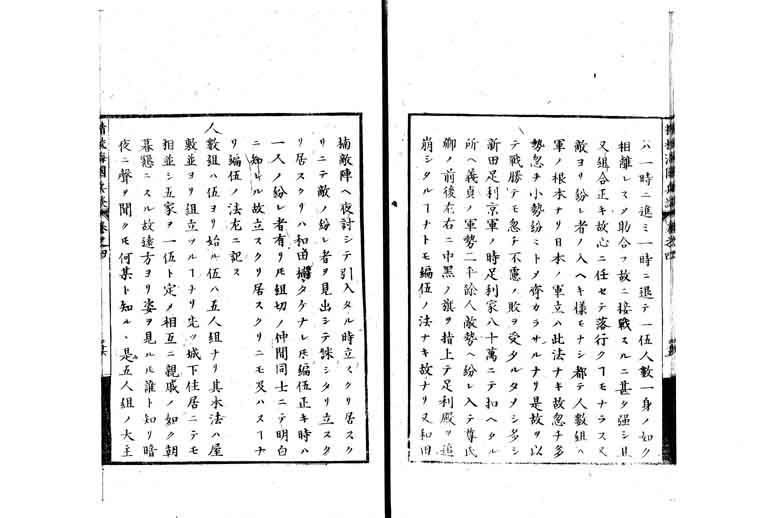 ハ一時ニ進ミ一時ニ退テ一伍人數一身ノ如ク
相離レスメ助合フ故ニ接戰スルニ甚タ强シ且
又組合正キ故心ニ任セテ落行クヿモナラス又
敵ヨリ紛レ者ノ入ヘキ樣モナシ都テ人數組ハ
軍ノ根本ナリ日本ノ軍立ハ此法ナキ故忽チ多
勢忽チ小勢紛ミトメ齊カラサルナリ是故ヲ以
テ戰勝テモ忽チ不慮ノ敗ヲ受タルタメシ多シ
新田足利京軍ノ時足利家八十萬ニテ扣ヘタル
所ヘ義貞ノ軍勢二千餘人敵勢ヘ紛レ入テ尊氏
卿ノ前後左右ニ中黑ノ旗ヲ指上テ足利殿ヲ追
崩シタルヿナトモ編伍ノ法ナキ故ナリ又和田
楠敵陣ヘ夜討シテ引入タル時立スクリ居スク
リニテ敵ノ紛レ者ヲ見出シテ誅シタリ立スク
リ居スクリハ和田楠タケナレ𪜈編伍正キ時ハ
一人ノ紛レ者有リ𪜈組切ノ仲間同士ニテ明白
ニ知ルル故立スクリ居スクリニモ及ハスヿナ
リ編伍ノ法左ニ記ス
人數組ハ伍ヨリ始ル伍ハ五人組ナリ其本法ハ屋
敷並ヨリ組立ツルヿナリ先ツ城下住居ニテモ
相並シ五家ヲ一伍ト定メ相互ニ親戚ノ如ク朝
暮懇ニスル故遠方ヨリ姿ヲ見ル𪜈誰ト知リ暗
夜ニ聲ヲ聞ク𪜈何某ト知ル是五人組ノ大主